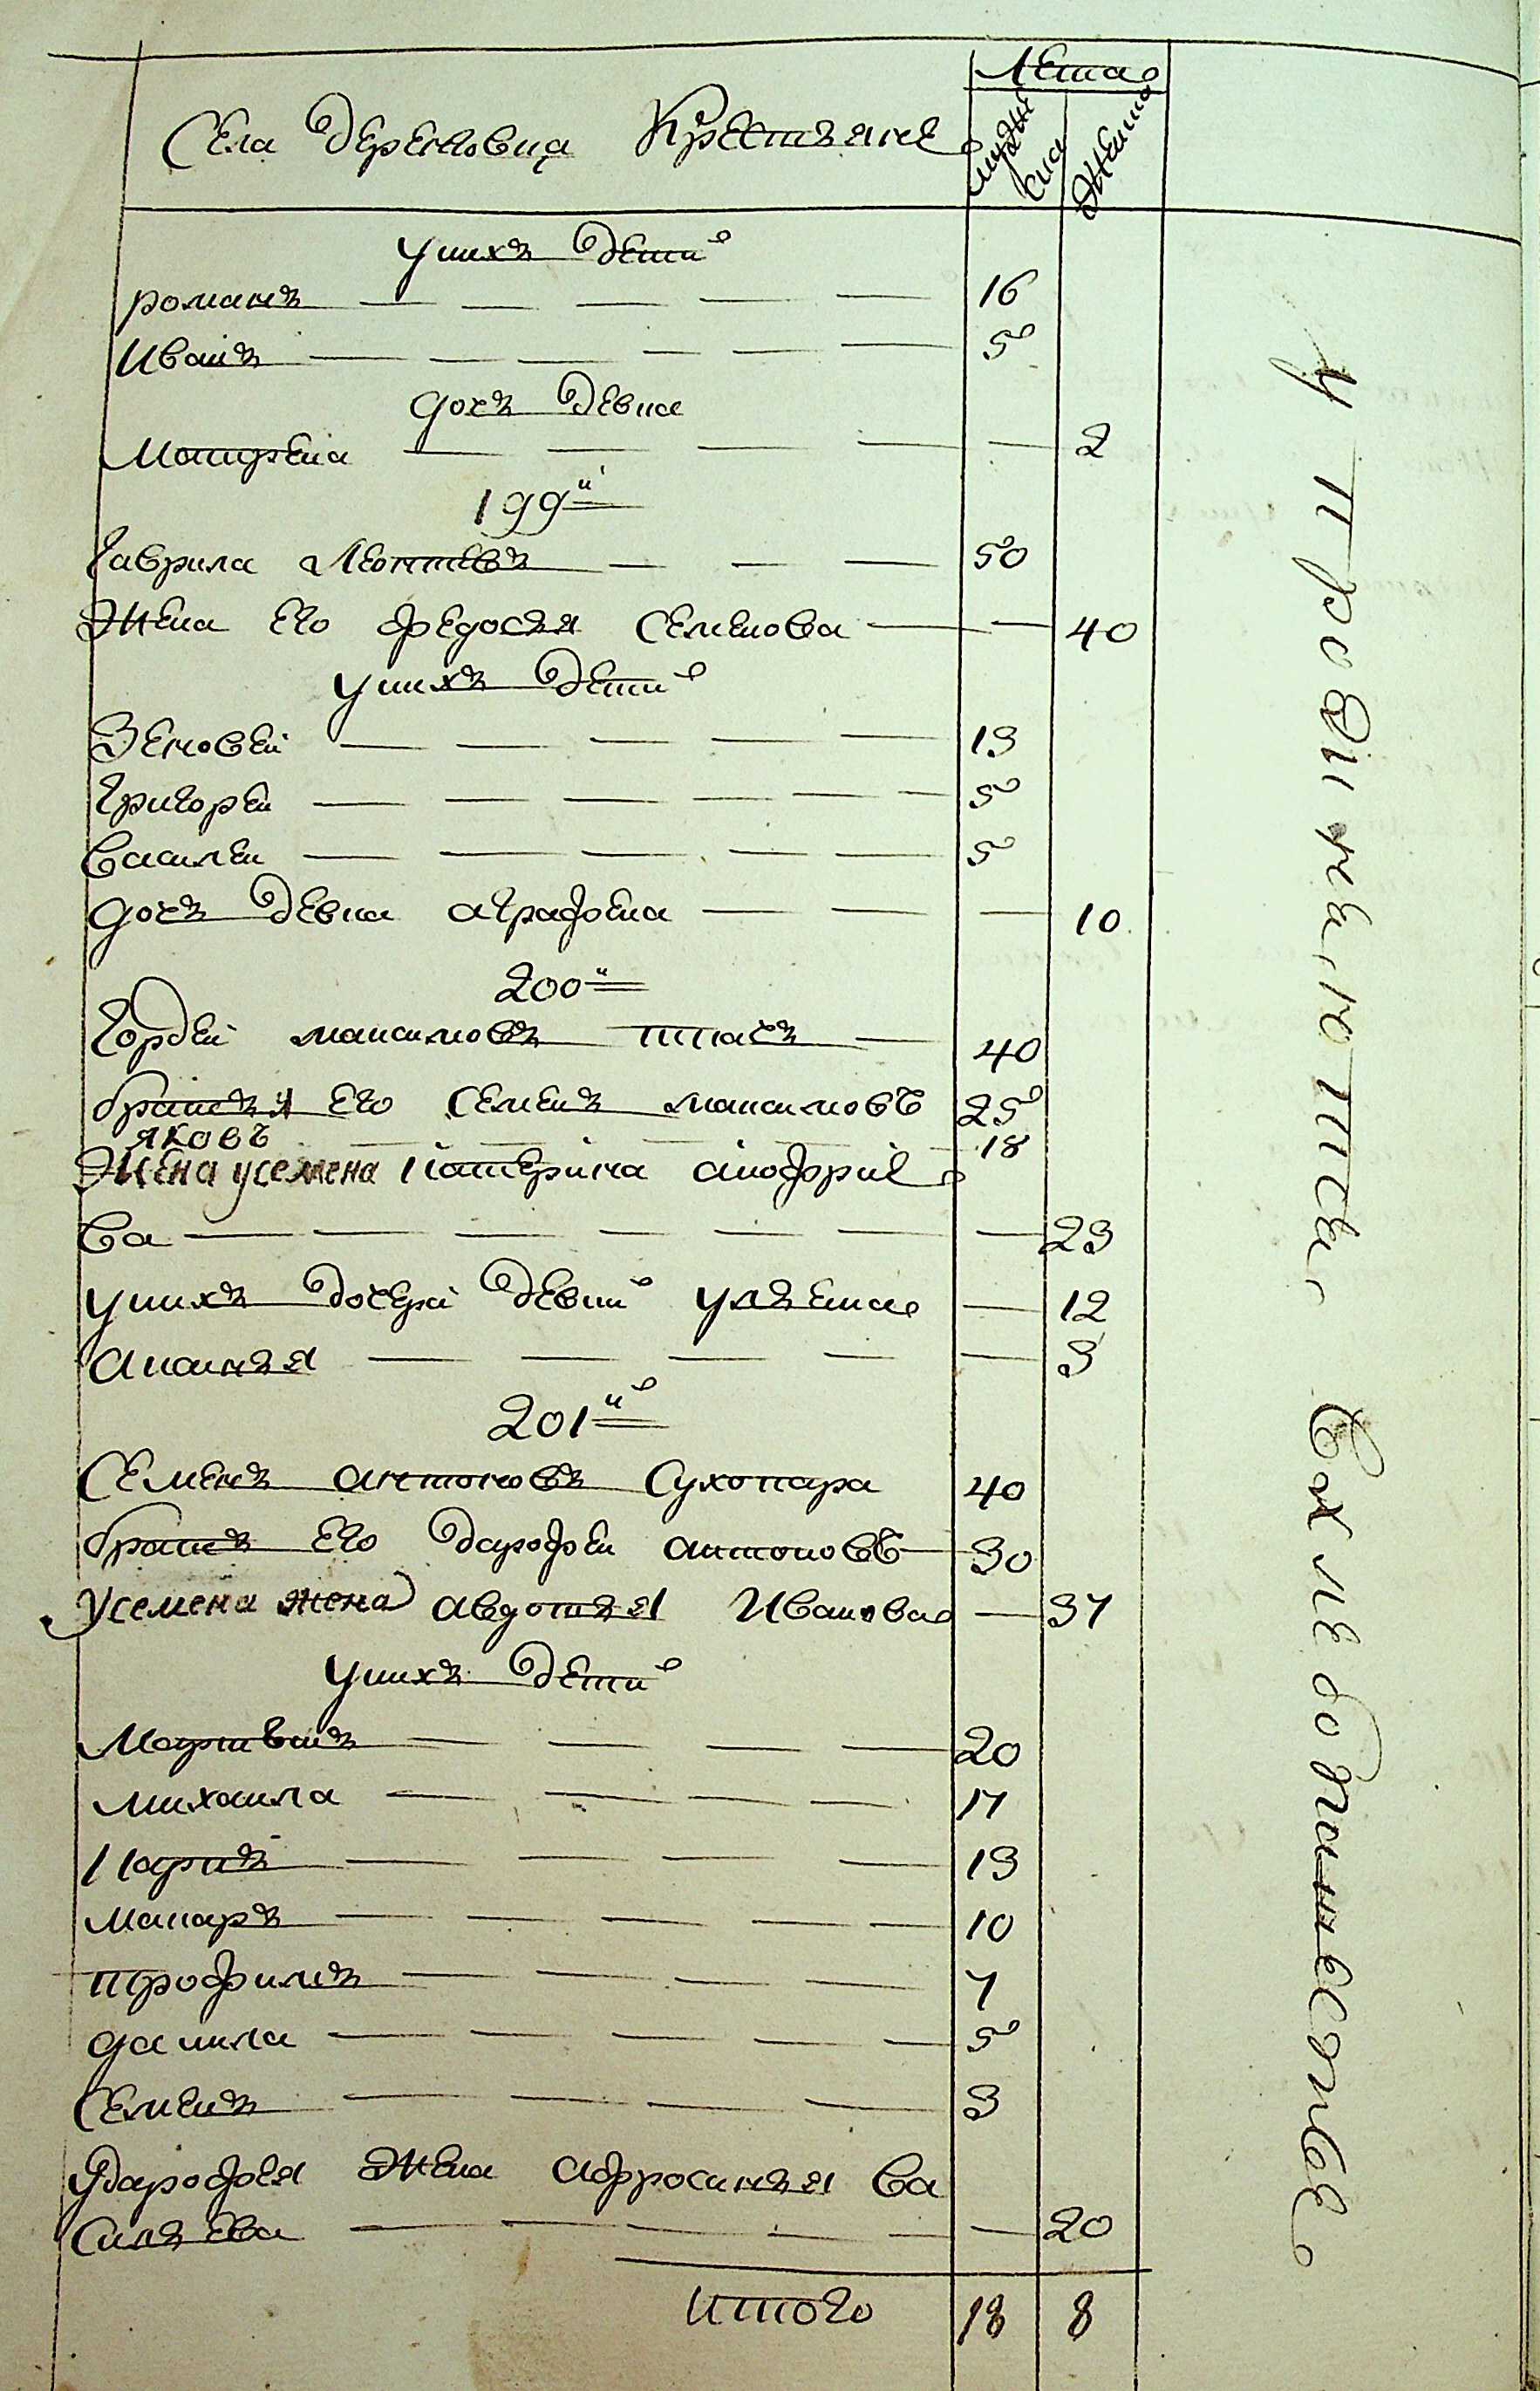 Лета
Села Дереновца Крестьяне мужеска женска
у нихъ дети
романъ — — — — — 16
Иванъ — — — — — — 5
дочь девка
Матрена — — — — — 2
199й
Гаврила Леонтевъ — — — 50
Жена его федосья Семенова — — 40
у нихъ дети
Зеновей — — — — — 13
Григорей — — — — — — 5
Василей — — — — — 5
дочь девка аграфена — — — 10
200й
Гордей максимовъ ткачь — 40
братья его Семенъ максимовъ 25
яковъ — — — — — 18
Жена у семена Катерина анофрие
ва — — — — — — — 23
у нихъ дочери девки ульяна — 12
Ананья — — — — — 3
201й
Семенъ антоновъ Сухопара 40
братъ его дарофеи антоновъ — 30
У семена жена авдотья Иванова — 37
у нихъ дети
Мартинъ — — — — 20
михаила — — — — — 17
Карпъ — — — — 13
макаръ — — — — — 10
трофимъ — — — — 7
данила — — — — — 5
Семенъ — — — — 3
У дарофея жена афросинья Ва
сильева — — — — — — 20
итого 18 8
у проникнотце, в хлебопашестве